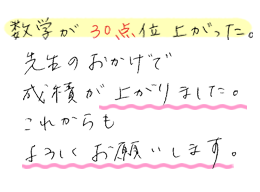 数学が30点位上がった。
先生のおかげで
成績が上がりました。
これからも
よろしくお願いします。